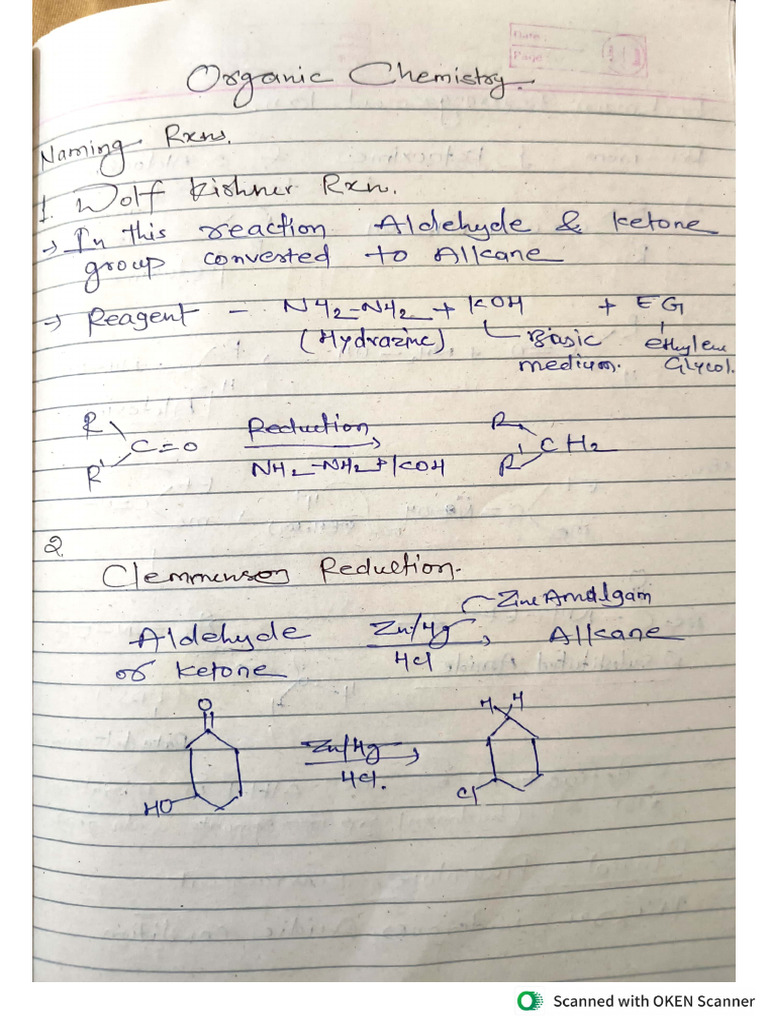 Date:
Page
Organic Chemistry.
Naming Rxns.
1. Wolf Kishner Rxn.
→ In this reaction Aldehyde & ketone
group converted to Alkane
→ Reagent - NH2-NH2 + KOH + EG
(Hydrazine) Basic ethylene
medium. Glycol.
R
C=O Reduction R CH2
R' NH2-NH2+KOH R'
2
Clemmenson Reduction.
Zinc Amalgam
Aldehyde Zn/Hg Alkane
or ketone HCl
O H H
Zn/Hg
HO HCl. Cl
Scanned with OKEN Scanner